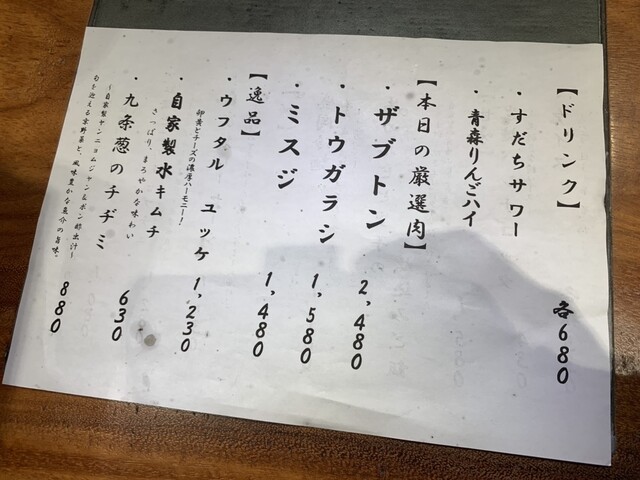 【ドリンク】
・すだちサワー
・青森りんごハイ
各680
【本日の厳選肉】
・ザブトン 2,480
・トウガラシ 1,580
・ミスジ 1,480
【逸品】
・ウフタル ユッケ 1,230
卵黄とチーズの濃厚ハーモニー！
・自家製水キムチ 630
さっぱり、まろやかな味わい
・九条葱のチヂミ 880
〜自家製ヤンニョムジャン&ポン酢出汁〜
旬を迎える京野菜と、風味豊かな魚介の旨味。